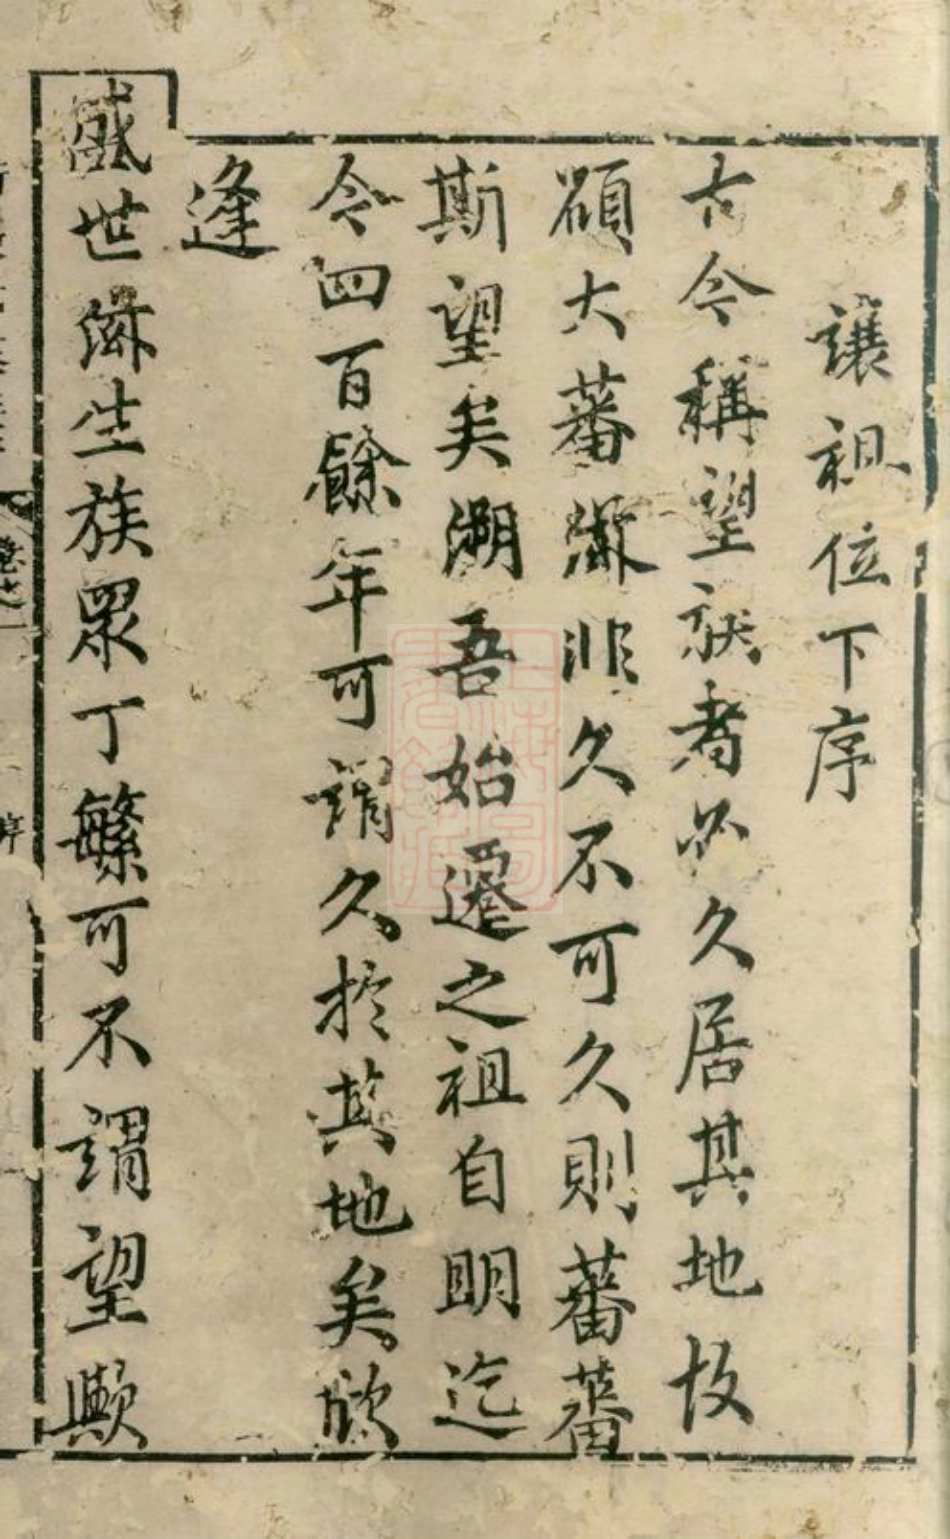 讓祖位下序
古今稱望族者必久居其地故
碩大蕃滋非久不可久則蕃蕃
斯望矣溯吾始遷之祖自明迄
今四百餘年可謂久於其地矣欣
逢
盛世滋生族眾丁繁可不謂望歟
序